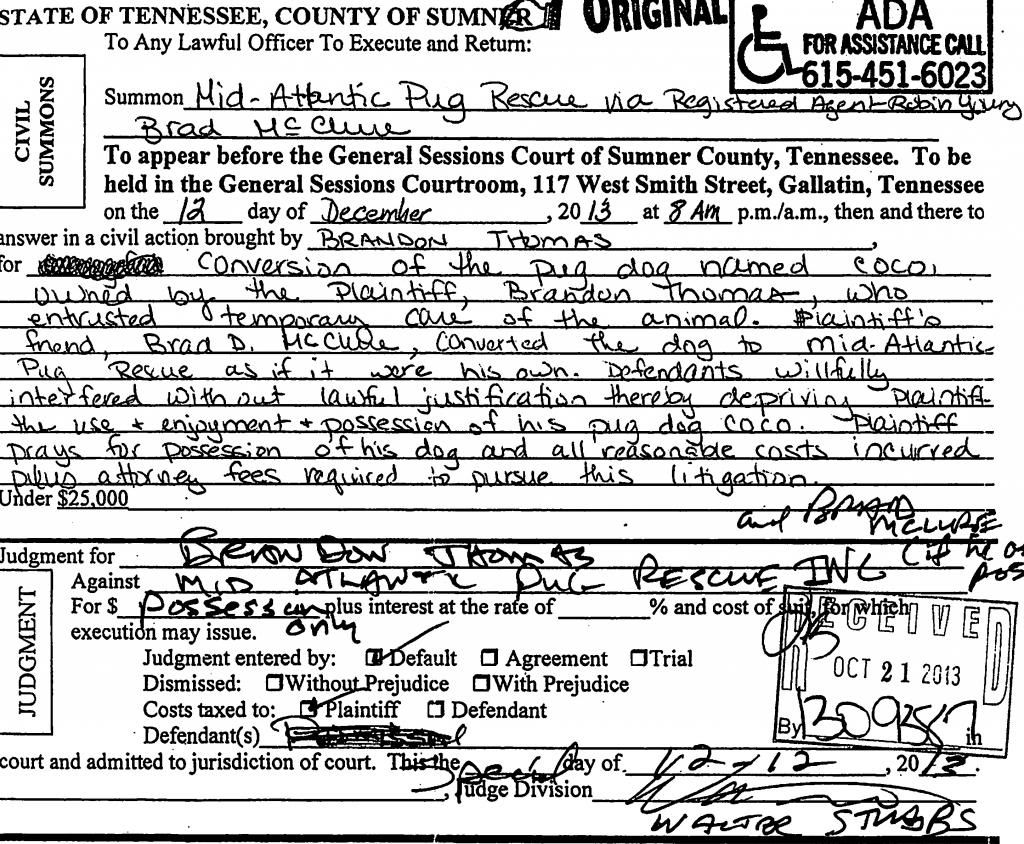 STATE OF TENNESSEE, COUNTY OF SUMNER
ORIGINAL
ADA
FOR ASSISTANCE CALL
615-451-6023
To Any Lawful Officer To Execute and Return:
CIVIL SUMMONS
Summon Mid-Atlantic Pug Rescue via Registered Agent-Robin Young
Brad McClure
To appear before the General Sessions Court of Sumner County, Tennessee. To be
held in the General Sessions Courtroom, 117 West Smith Street, Gallatin, Tennessee
on the 12 day of December, 2013 at 8 AM p.m./a.m., then and there to
answer in a civil action brought by BRANDON THOMAS,
for conversion of the pug dog named COCO,
owned by the Plaintiff, Brandon Thomas, who
entrusted temporary care of the animal. Plaintiff's
friend, Brad D. McClure, converted the dog to Mid-Atlantic
Pug Rescue as if it were his own. Defendants willfully
interfered without lawful justification thereby depriving Plaintiff
the use + enjoyment + possession of his pug dog COCO. Plaintiff
prays for possession of his dog and all reasonable costs incurred
plus attorney fees required to pursue this litigation.
Under $25,000
and BRAD
MCLURE
(if he
Judgment for Brandon Thomas
Against MID ATLANTIC PUG RESCUE INC
JUDGMENT
For $ possession plus interest at the rate of % and cost of suit, for which
only
execution may issue.
Judgment entered by: Default Agreement Trial
Dismissed: Without Prejudice With Prejudice
Costs taxed to: Plaintiff Defendant
Defendant(s)
RECEIVED
OCT 21 2013
By
in
court and admitted to jurisdiction of court. This the day of 12-12, 2013.
Special
, Judge Division
WALTER STUBBS